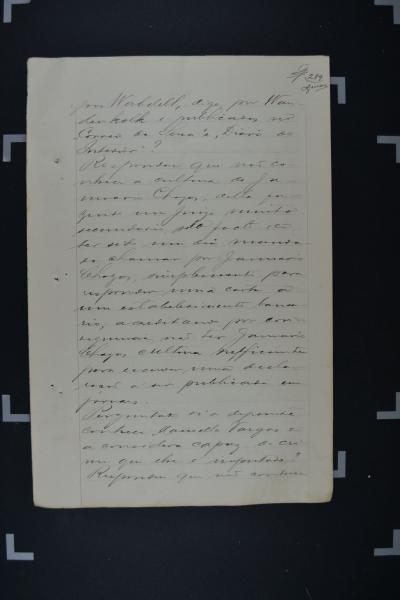 289
por Wandelk, digo, por Wan-
denkolk e publicadas no
Correio da Serra e, Diario do
Interior"?
Respondeu que não co-
nhece a cultura de Ja-
nuario Chagas, delle fa-
zendo um juizo muito
secundario pelo facto de
ter sido um dia manda-
do chamar por Januario
Chagas, simplesmente para
responder uma carta a
um estabelecimento banca-
rio, acreditando por con-
seguinte não ter Januario
Chagas cultura sufficiente
para escrever uma decla-
ração a ser publicada em
jornaes.
Perguntado si o depoente
conhece Marcello Vargas e
a considera capaz do cri-
me que lhe é imputado?
Respondeu que não conhece